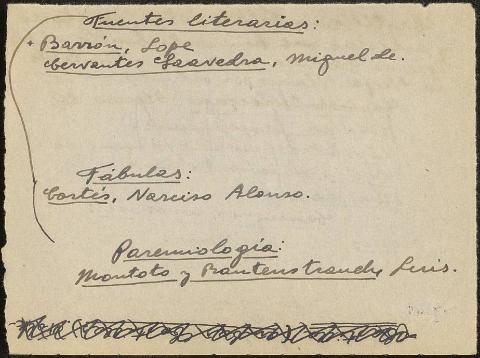 Fuentes literarias:
+ Barrón, Lope
Cervantes Saavedra, Miguel de.
Fábulas:
Cortés, Narciso Alonso.
Paremiología:
Montoto y Rautenstrauch, Luis.